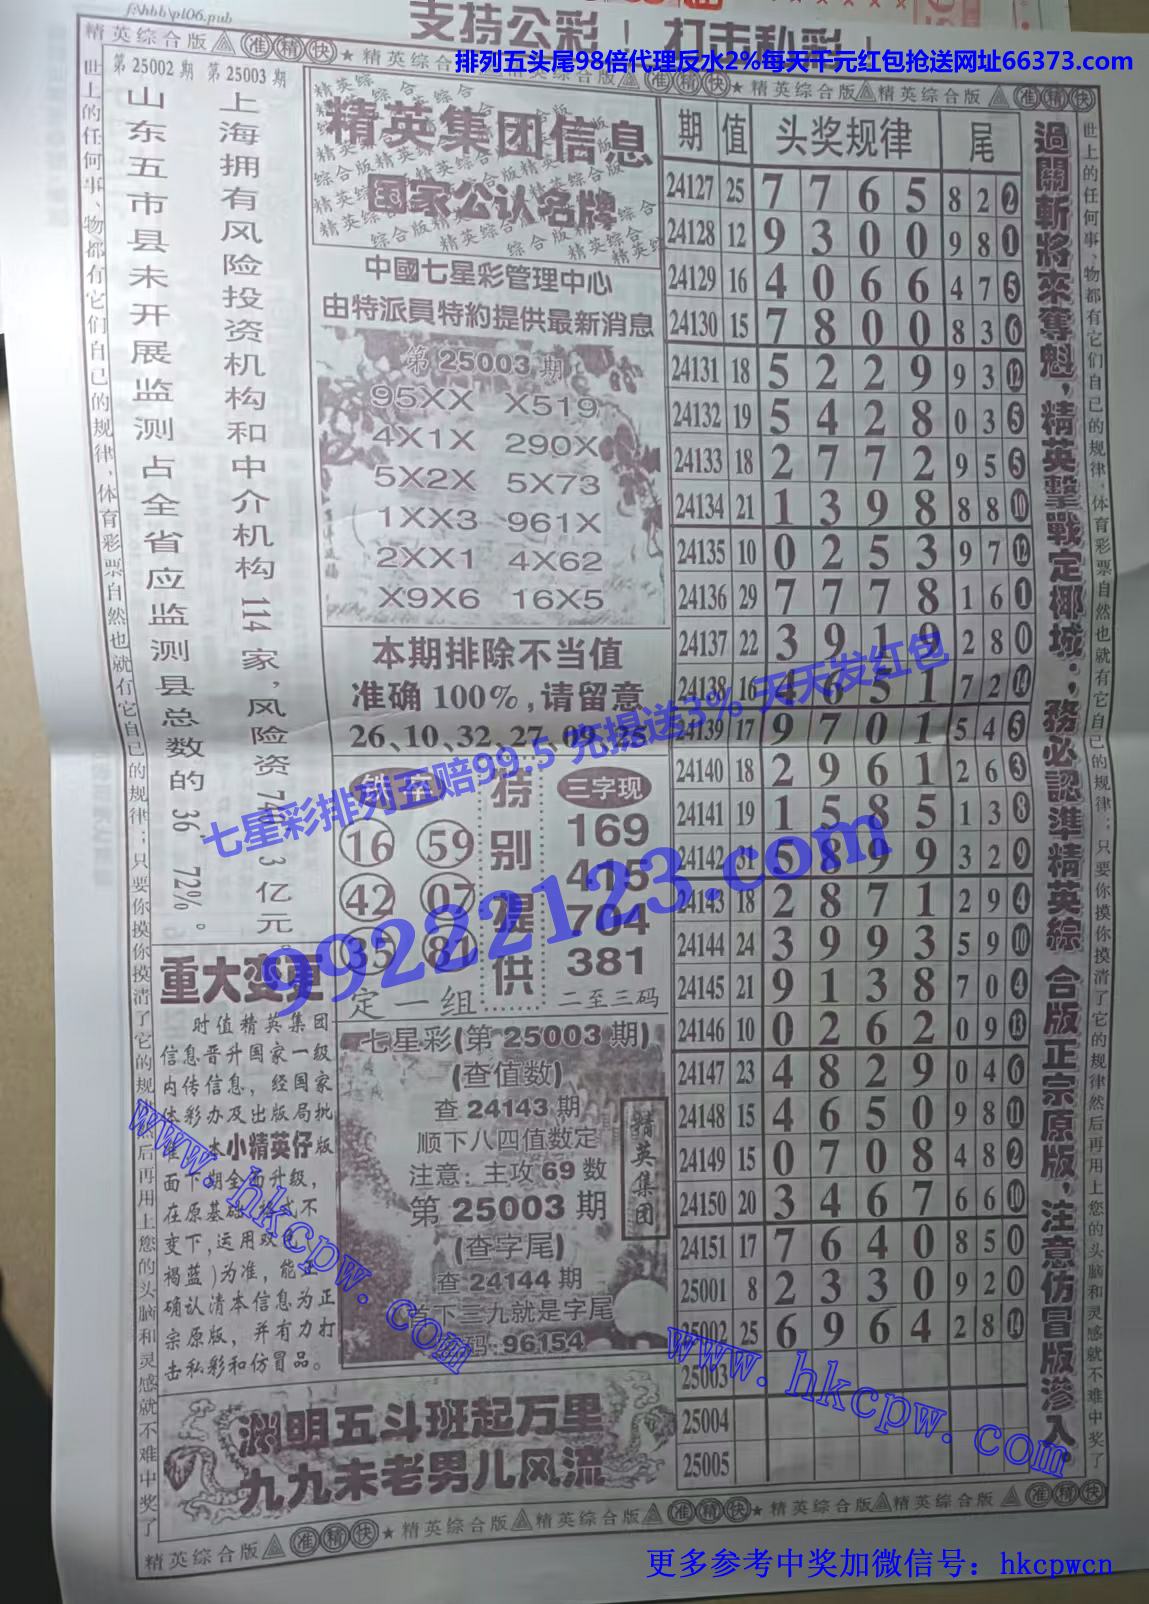 f:\hbb\pl06.pub
支持公彩！打击私彩！
排列五头尾98倍代理反水2%每天千元红包抢送网址66373.com
精英综合版 准精快 ★ 精英综合版 精英综合版 准精快 ★ 精英综合版 精英综合版 准精快
世上的任何事、物都有它们自己的规律，体育彩票自然也就有它自己的规律；只要你摸你摸清了它的规律然后再用上您的头脑和灵感就不难中奖了
第25002期 第25003期
山东五市县未开展监测占全省应监测县总数的36．72%。
上海拥有风险投资机构和中介机构114家，风险资740．3亿元。
精英集团信息
国家公认名牌
中國七星彩管理中心
由特派員特約提供最新消息
第25003期
95XX X519
4X1X 290X
5X2X 5X73
1XX3 961X
2XX1 4X62
X9X6 16X5
本期排除不当值
准确100%,请留意
26、10、32、27、09、25
特别提供
三字现
16 59
42 07
35 81
定一组
169
415
704
381
二至三码
重大变更
时值精英集团
信息晋升国家一级
内传信息，经国家
体彩办及出版局批
本小精英仔版
面下期全面升级，
在原基础格式不
变下,运用双色
褐蓝)为准，能正
确认清本信息为正
宗原版，并有力打
击私彩和仿冒品。
七星彩(第25003期)
(查值数)
查24143期
顺下八四值数定
注意：主攻69数
第25003期
(查字尾)
查24144期
首下三九就是字尾
码:96154
精英集团
渊明五斗班起万里
九九未老男儿风流
期 值 头奖规律 尾
24127 25 7 7 6 5 8 2 2
24128 12 9 3 0 0 9 8 1
24129 16 4 0 6 6 4 7 5
24130 15 7 8 0 0 8 3 6
24131 18 5 2 2 9 9 3 12
24132 19 5 4 2 8 0 3 5
24133 18 2 7 7 2 9 5 5
24134 21 1 3 9 8 8 8 10
24135 10 0 2 5 3 9 7 12
24136 29 7 7 7 8 1 6 1
24137 22 3 9 1 9 2 8 0
24138 16 4 6 5 1 7 2 14
24139 17 9 7 0 1 5 4 5
24140 18 2 9 6 1 2 6 3
24141 19 1 5 8 5 1 3 8
24142 31 5 8 9 9 3 2 9
24143 18 2 8 7 1 2 9 4
24144 24 3 9 9 3 5 9 10
24145 21 9 1 3 8 7 0 4
24146 10 0 2 6 2 0 9 13
24147 23 4 8 2 9 0 4 6
24148 15 4 6 5 0 9 8 11
24149 15 0 7 0 8 4 8 2
24150 20 3 4 6 7 6 6 10
24151 17 7 6 4 0 8 5 0
25001 8 2 3 3 0 9 2 0
25002 25 6 9 6 4 2 8 14
25003
25004
25005
過關斬將來奪魁，精英擊戰定椰城；務必認準精英綜 合版正宗原版，注意仿冒版滲入。
世上的任何事、物都有它们自己的规律，体育彩票自然也就有它自己的规律；只要你摸你摸清了它的规律然后再用上您的头脑和灵感就不难中奖了
精英综合版 准精快 ★ 精英综合版 精英综合版 准精快 ★ 精英综合版 精英综合版 准精快
七星彩排列五赔99.5 充提送3% 天天发红包
99222123.com
www.hkcpw.com
www.hkcpw.com
更多参考中奖加微信号：hkcpwcn